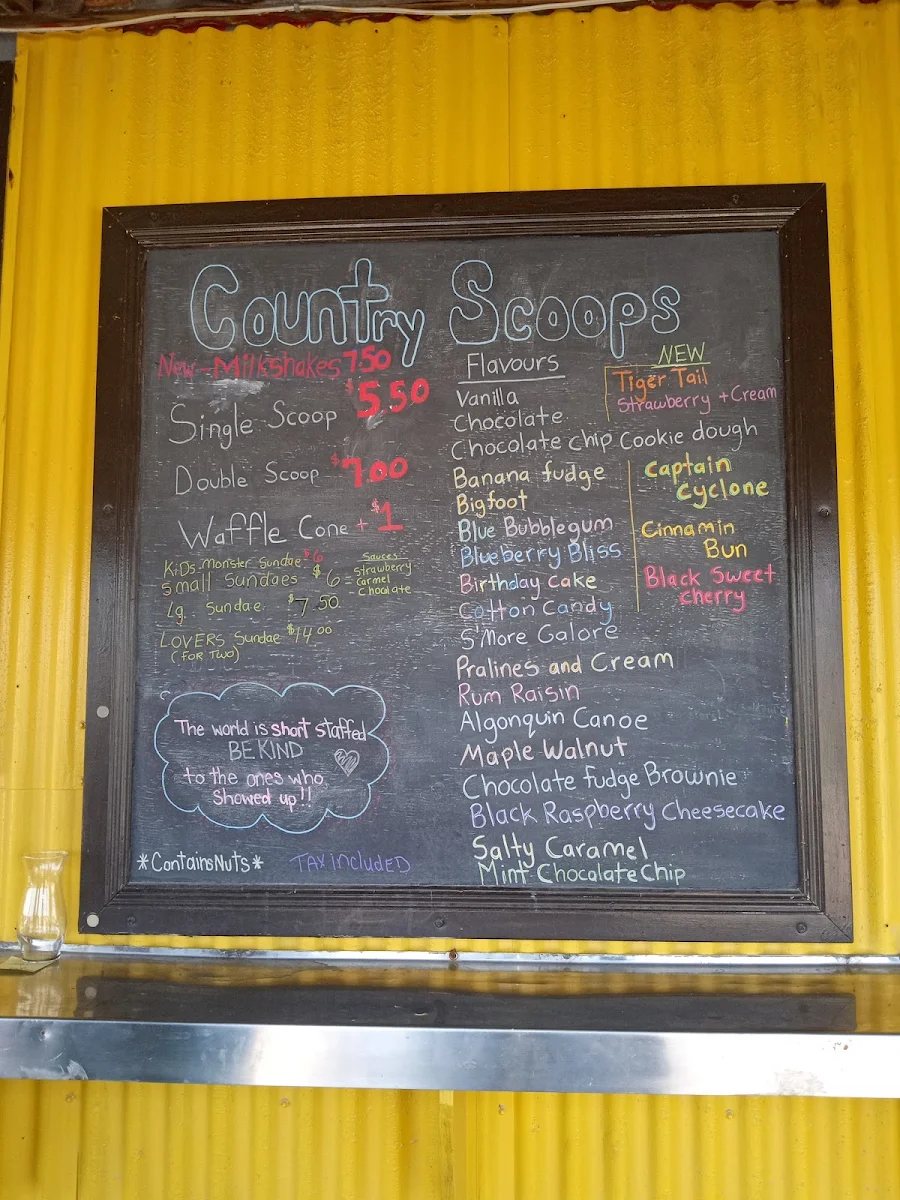 Country Scoops
New-Milkshakes 7.50
Single Scoop $5.50
Double Scoop $7.00
Waffle Cone + $1
KiDs Monster Sundae $6
Small Sundaes $6 =
Sauces
Strawberry
Carmel
Chocolate
Lg. Sundae $7.50
LOVERS Sundae $14.00
(FOR TWO)
The world is short staffed
BE KIND
to the ones who
Showed up!!
*ContainsNuts*
TAX INCLUDED
Flavours
Vanilla
Chocolate
Chocolate chip Cookie dough
Banana fudge
Bigfoot
Blue Bubblegum
Blueberry Bliss
Birthday cake
Cotton Candy
S'More Galore
Pralines and Cream
Rum Raisin
Algonquin Canoe
Maple Walnut
Chocolate fudge Brownie
Black Raspberry Cheesecake
Salty Caramel
Mint Chocolate Chip
NEW
Tiger Tail
Strawberry + Cream
Captain
Cyclone
Cinnamin
Bun
Black Sweet
cherry